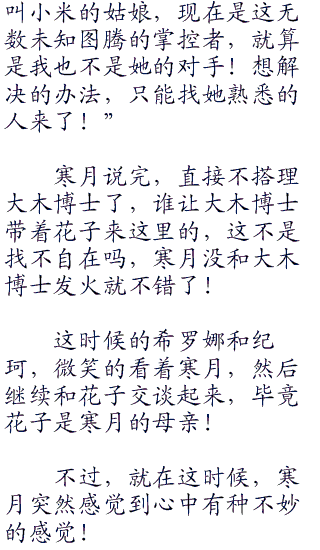 叫小米的姑娘，现在是这无
数未知图腾的掌控者，就算
是我也不是她的对手！想解
决的办法，只能找她熟悉的
人来了！”
寒月说完，直接不搭理
大木博士了，谁让大木博士
带着花子来这里的，这不是
找不自在吗，寒月没和大木
博士发火就不错了！
这时候的希罗娜和纪
珂，微笑的看着寒月，然后
继续和花子交谈起来，毕竟
花子是寒月的母亲！
不过，就在这时候，寒
月突然感觉到心中有种不妙
的感觉！